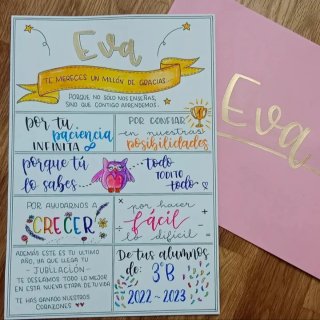 Eva
TE MERECES UN MILLÓN DE GRACIAS:
PORQUE NO SOLO NOS ENSEÑAS,
SINO QUE CONTIGO APRENDEMOS.
Por tu
paciencia
INFINITA
POR CONFIAR
en nuestras
posibilidades
porque tú
lo sabes
todo
TODITO
todo
POR AYUDARNOS A
CRECER
por hacer
fácil
lo difícil
ADEMÁS ESTE ES TU ÚLTIMO
AÑO, YA QUE LLEGA TU
- JUBILACIÓN -
TE DESEAMOS TODO LO MEJOR
EN ESTA NUEVA ETAPA DE TU VIDA
TE HAS GANADO NUESTROS
CORAZONES
De tus alumnos
de: 3ºB
2022 - 2023
Eva